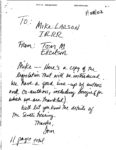 To: Mike Larson
IRRR
From: Tom M
Mike — Here's a copy of the
legislation that will be introduced.
We have a good line-up of authors
and co-authors, including
which we are thankful)
Will let you know the details of
the Senate hearing.
Thanks,
Tom
11 pages total